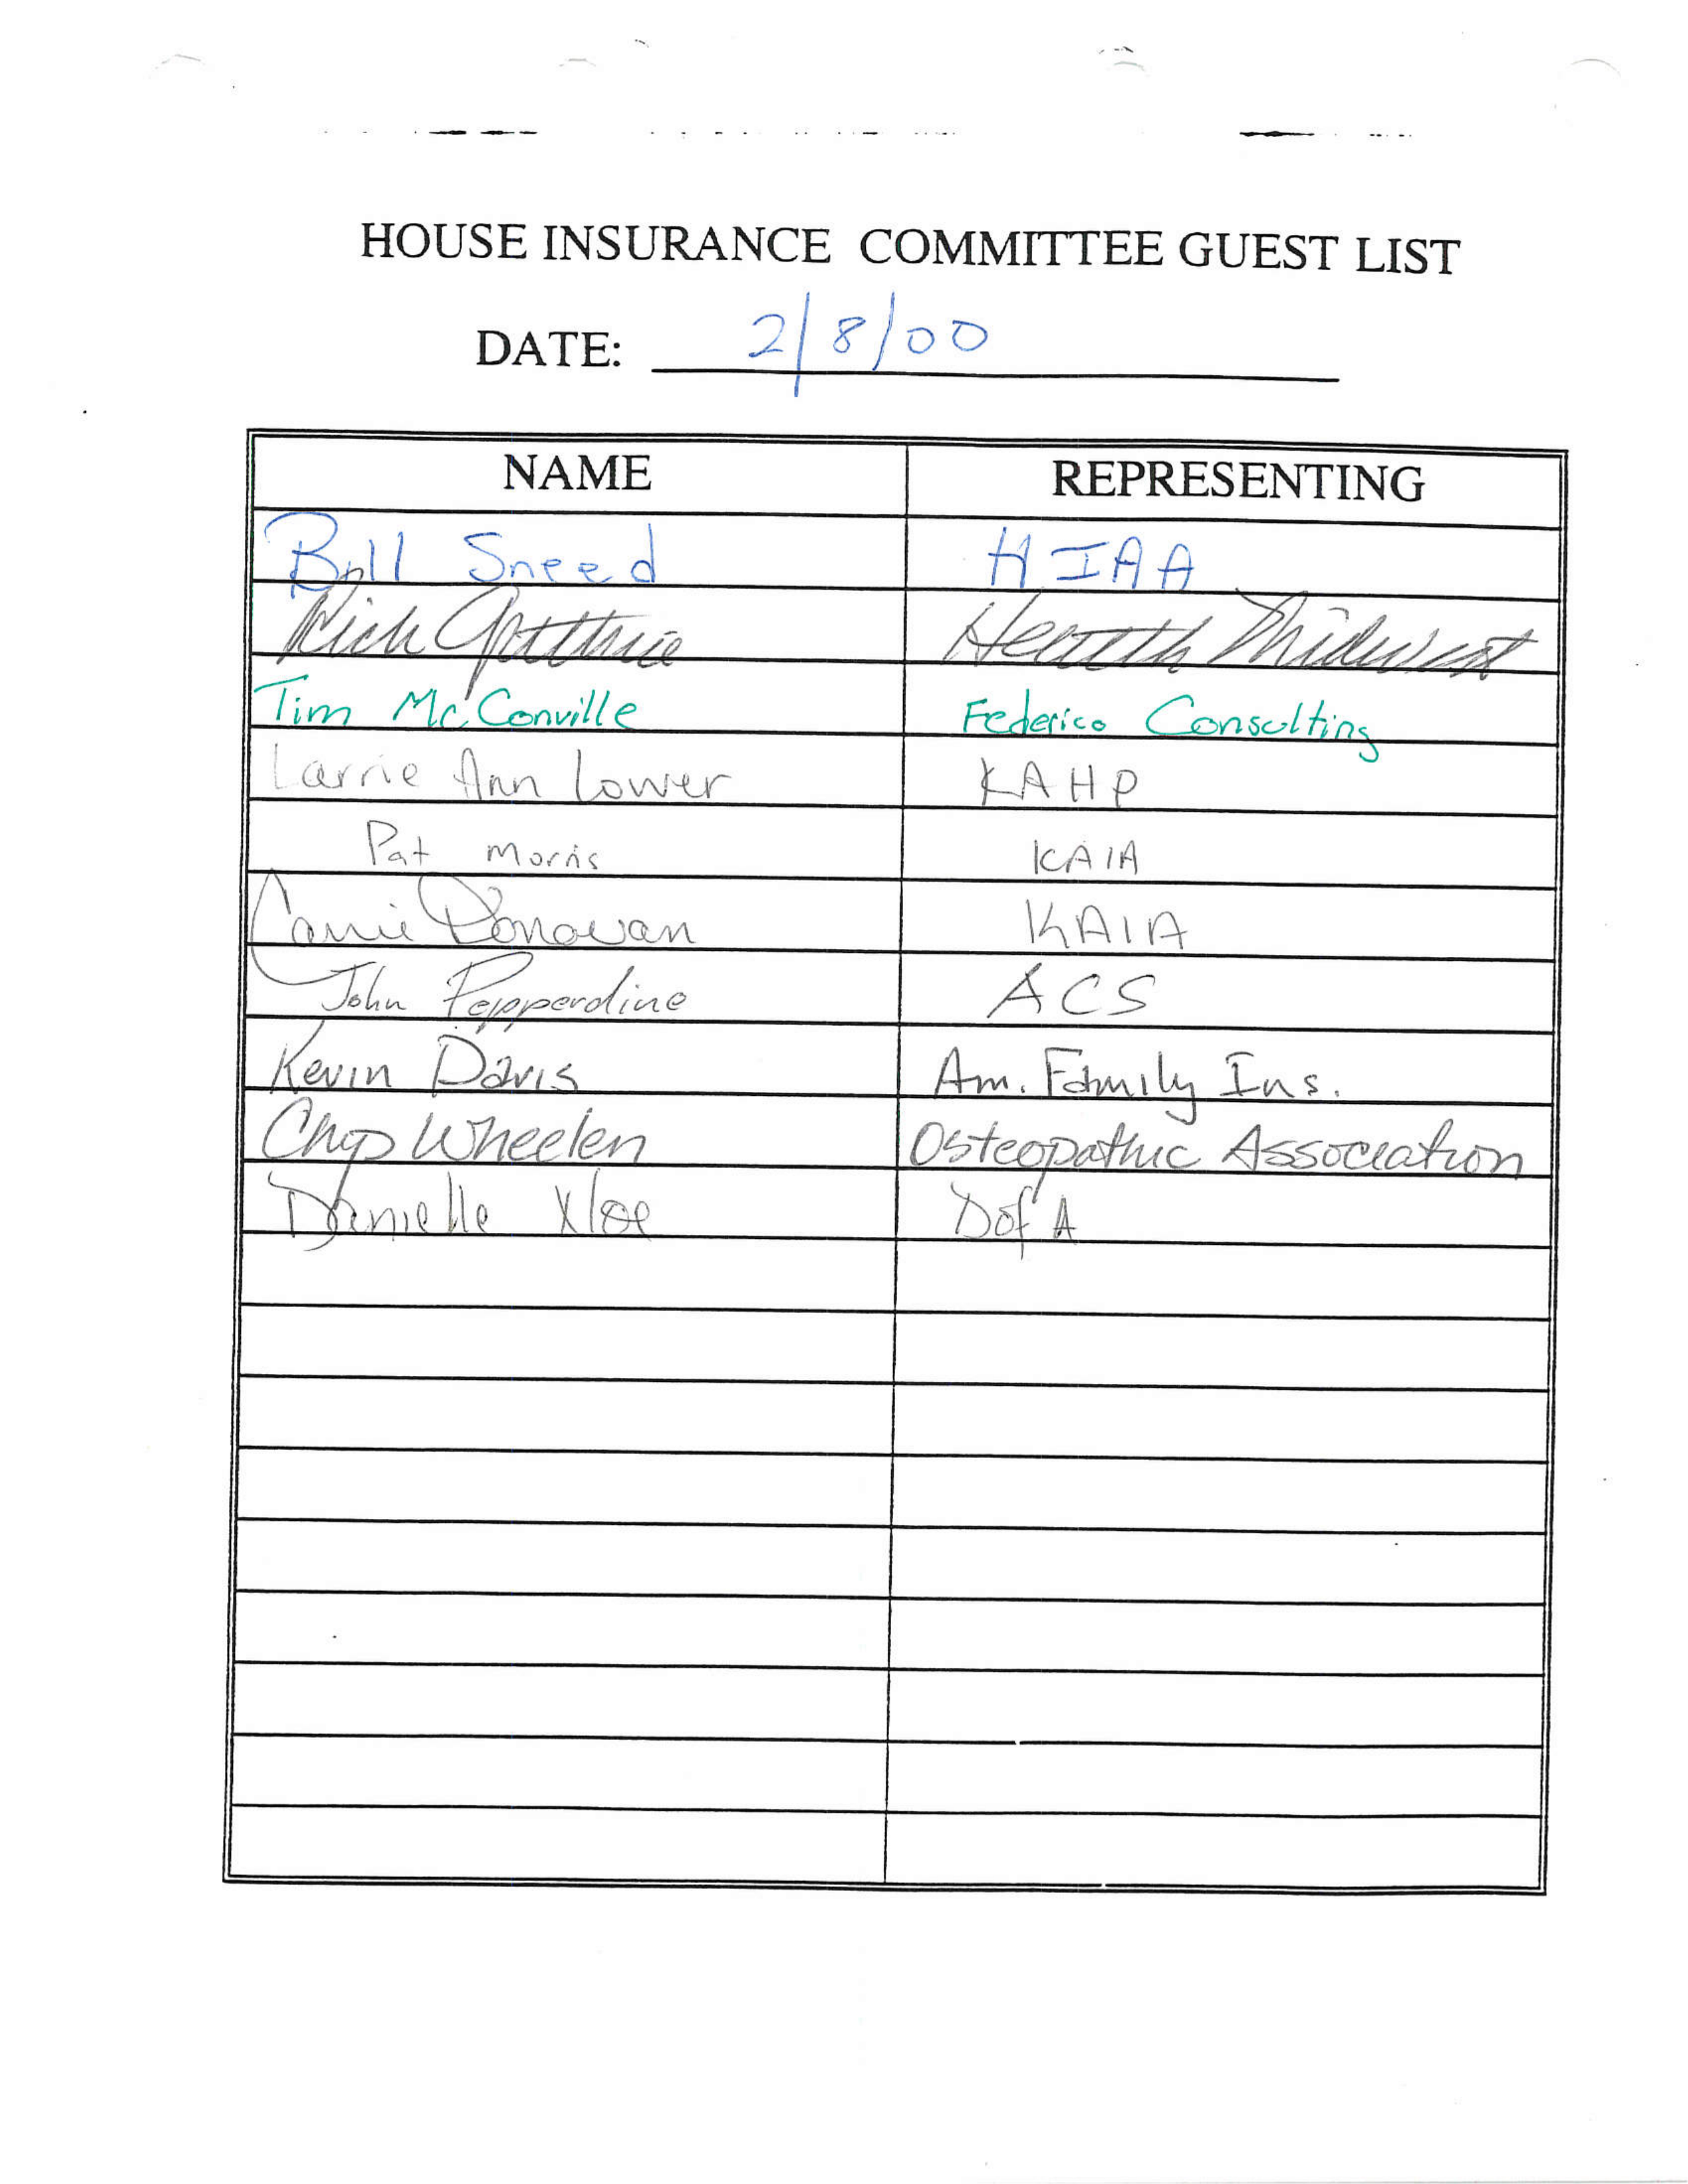 HOUSE INSURANCE COMMITTEE GUEST LIST
DATE: 2/8/00
NAME REPRESENTING
Bill Sneed HIAA
Rich Guthrie Health Midwest
Tim McConville Federico Consulting
Larrie Ann Lower KAHP
Pat Morris KAIA
Carrie Donovan KAIA
John Pepperdine ACS
Kevin Davis Am. Family Ins.
Chip Wheelen Osteopathic Association
Danielle DofA